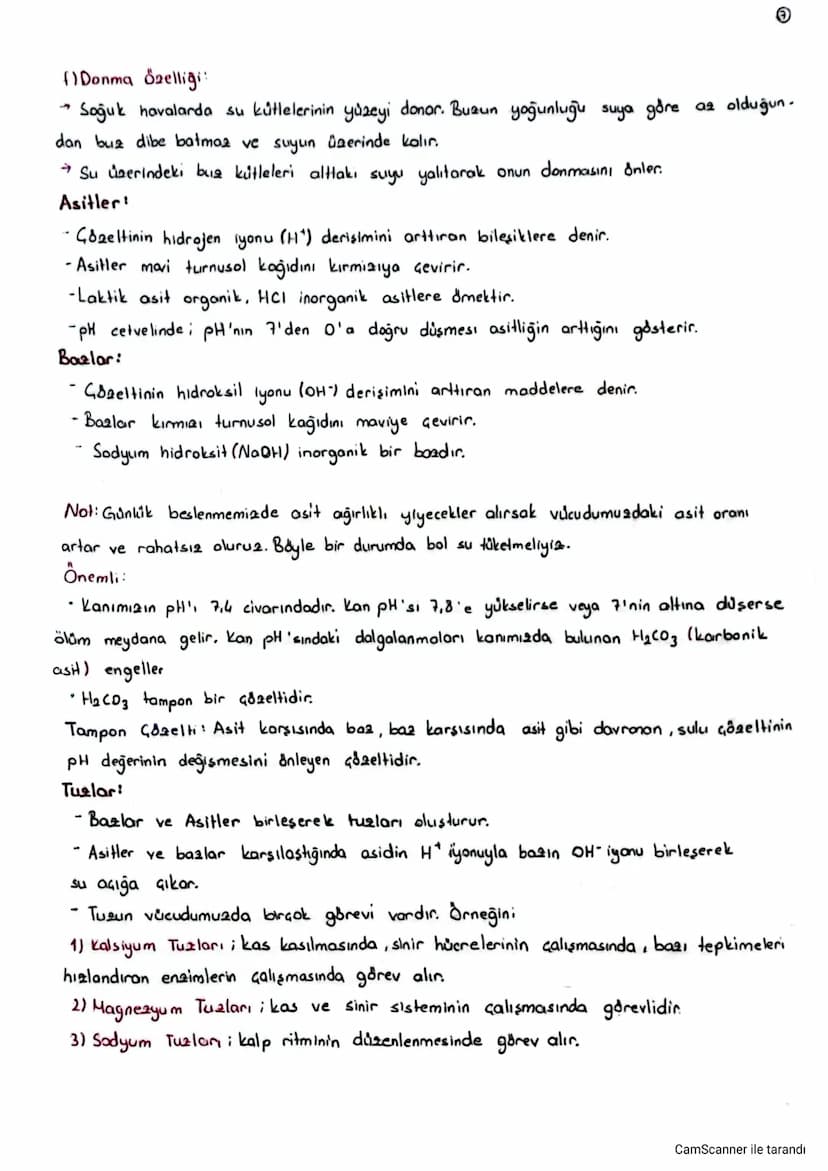 7
f) Donma Özelliği:
→ Soğuk havalarda su kütlelerinin yüzeyi donar. Buzun yoğunluğu suya göre az olduğun-
dan buz dibe batmaz ve suyun üzerinde kalır.
→ Su üzerindeki buz kütleleri alttaki suyu yalıtarak onun donmasını önler.
Asitler:
- Çözeltinin hidrojen iyonu (H⁺) derişimini arttıran bileşiklere denir.
- Asitler mavi turnusol kağıdını kırmızıya çevirir.
- Laktik asit organik, HCl inorganik asitlere örnektir.
- pH cetvelinde; pH'nın 7'den 0'a doğru düşmesi asitliğin arttığını gösterir.
Bazlar:
- Çözeltinin hidroksil iyonu (OH⁻) derişimini arttıran maddelere denir.
- Bazlar kırmızı turnusol kağıdını maviye çevirir.
- Sodyum hidroksit (NaOH) inorganik bir bazdır.
Not: Günlük beslenmemizde asit ağırlıklı yiyecekler alırsak vücudumuzdaki asit oranı
artar ve rahatsız oluruz. Böyle bir durumda bol su tüketmeliyiz.
Önemli:
• Kanımızın pH'ı 7,4 civarındadır. Kan pH'sı 7,8'e yükselirse veya 7'nin altına düşerse
ölüm meydana gelir. Kan pH'sındaki dalgalanmaları kanımızda bulunan H₂CO₃ (karbonik
asit) engeller
• H₂CO₃ tampon bir çözeltidir.
Tampon Çözelti: Asit karşısında baz, baz karşısında asit gibi davranan, sulu çözeltinin
pH değerinin değişmesini önleyen çözeltidir.
Tuzlar:
- Bazlar ve Asitler birleşerek tuzları oluşturur.
- Asitler ve bazlar karşılaştığında asidin H⁺ iyonuyla bazın OH⁻ iyonu birleşerek
su açığa çıkar.
- Tuzun vücudumuzda birçok görevi vardır. Örneğin;
1) Kalsiyum Tuzları; kas kasılmasında, sinir hücrelerinin çalışmasında, bazı tepkimeleri
hızlandıran enzimlerin çalışmasında görev alır.
2) Magnezyum Tuzları; kas ve sinir sisteminin çalışmasında görevlidir.
3) Sodyum Tuzları; kalp ritminin düzenlenmesinde görev alır.
CamScanner ile tarandı